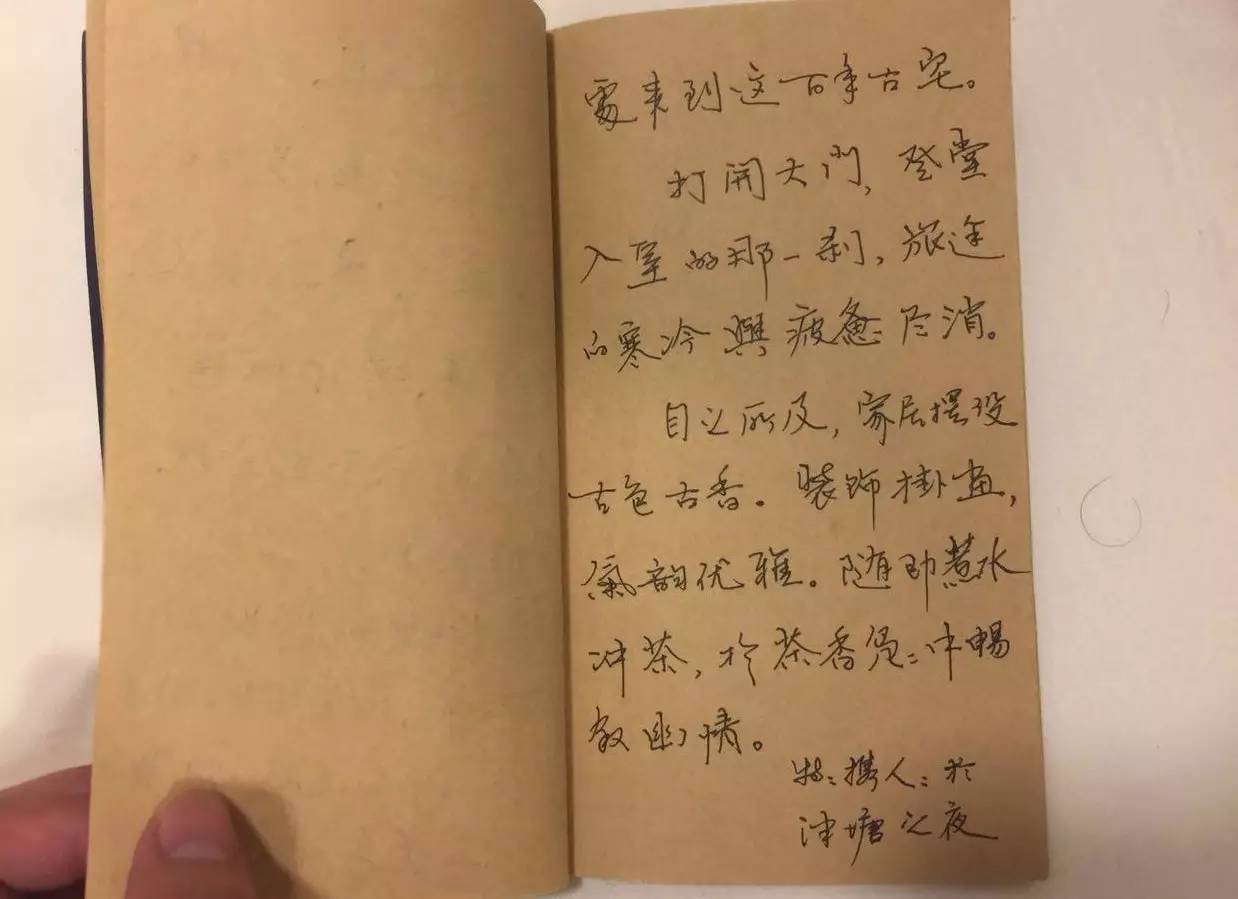 来到这百年古宅。
打開大門，登堂
入室的那一刹，旅途
的寒冷與疲惫尽消。
目之所及，家居摆设
古色古香。装饰掛画，
氣韵优雅。随即煮水
冲茶，於茶香袅々中暢
叙幽情。
携人々於
泮塘之夜